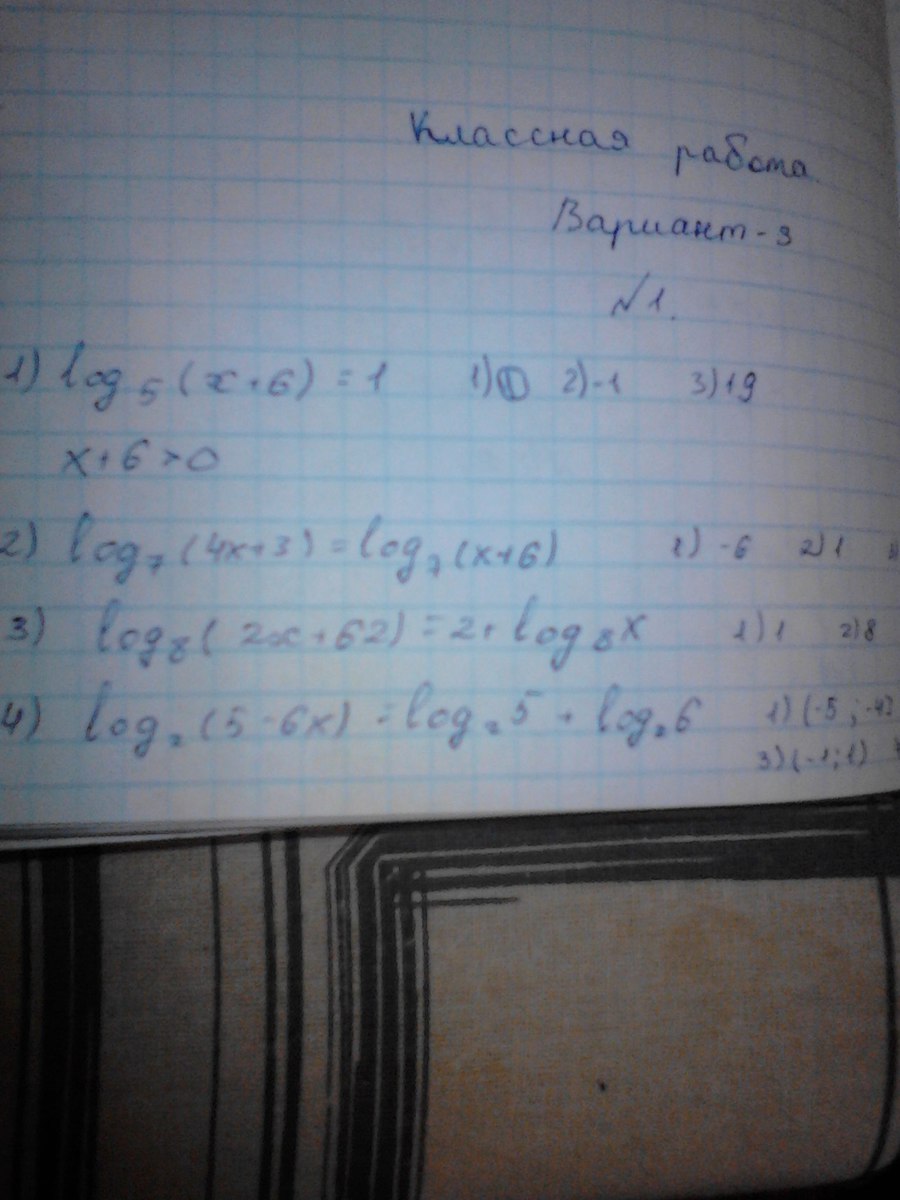 Классная работа
Вариант-3
№1.
1) log₅(x+6) = 1 1) 2)-1 3)19
x+6>0
2) log₇(4x+3) = log₇(x+6) 1) -6 2) 1
3) log₈(2x+62) = 2+log₈x 1) 1 2) 8
4) log₂(5-6x) = log₂5 + log₂6 1) (-5; -4)
3) (-1; 1)